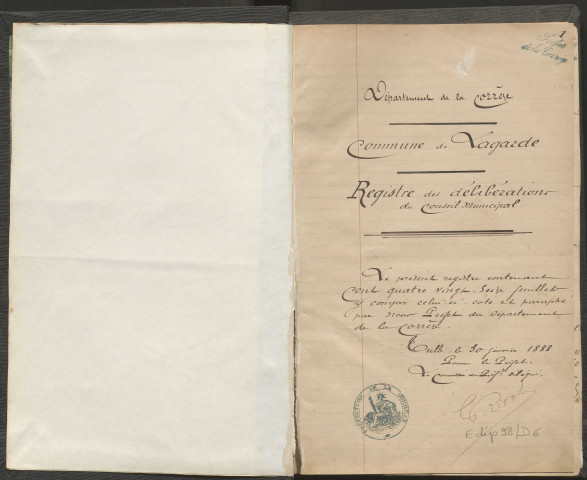 1
Département de la Corrèze
Commune de Lagarde
Registre des délibérations
du Conseil Municipal
Le présent registre contenant
Cent quatre vingt Seize feuillets
y compris celui-ci coté et paraphé
par nous Préfet du département
de la Corrèze.
Tulle, le 30 janvier 1888
Pour le Préfet:
Le Conseiller de Préfre délégué,
PRÉFECTURE DE LA CORRÈZE
E dép 98/D6